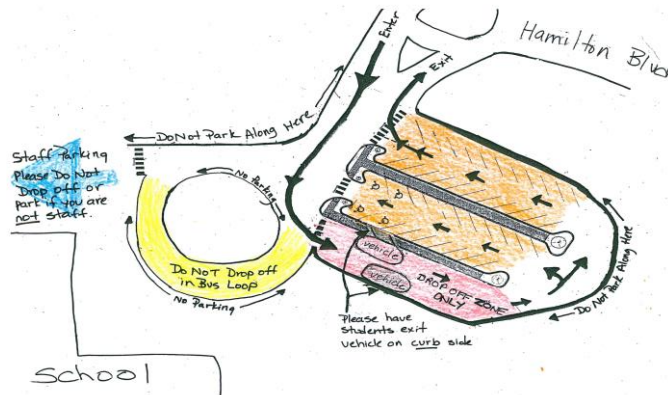 Hamilton Blvd
Enter
Exit
Do Not Park Along Here
Staff Parking
Please Do Not
Drop off or
park if you are
not staff.
No Parking
Do NOT Drop off
in Bus Loop
No Parking
vehicle
vehicle
DROP OFF ZONE
ONLY
Do Not Park Along Here
Please have
students exit
vehicle on curb side
School